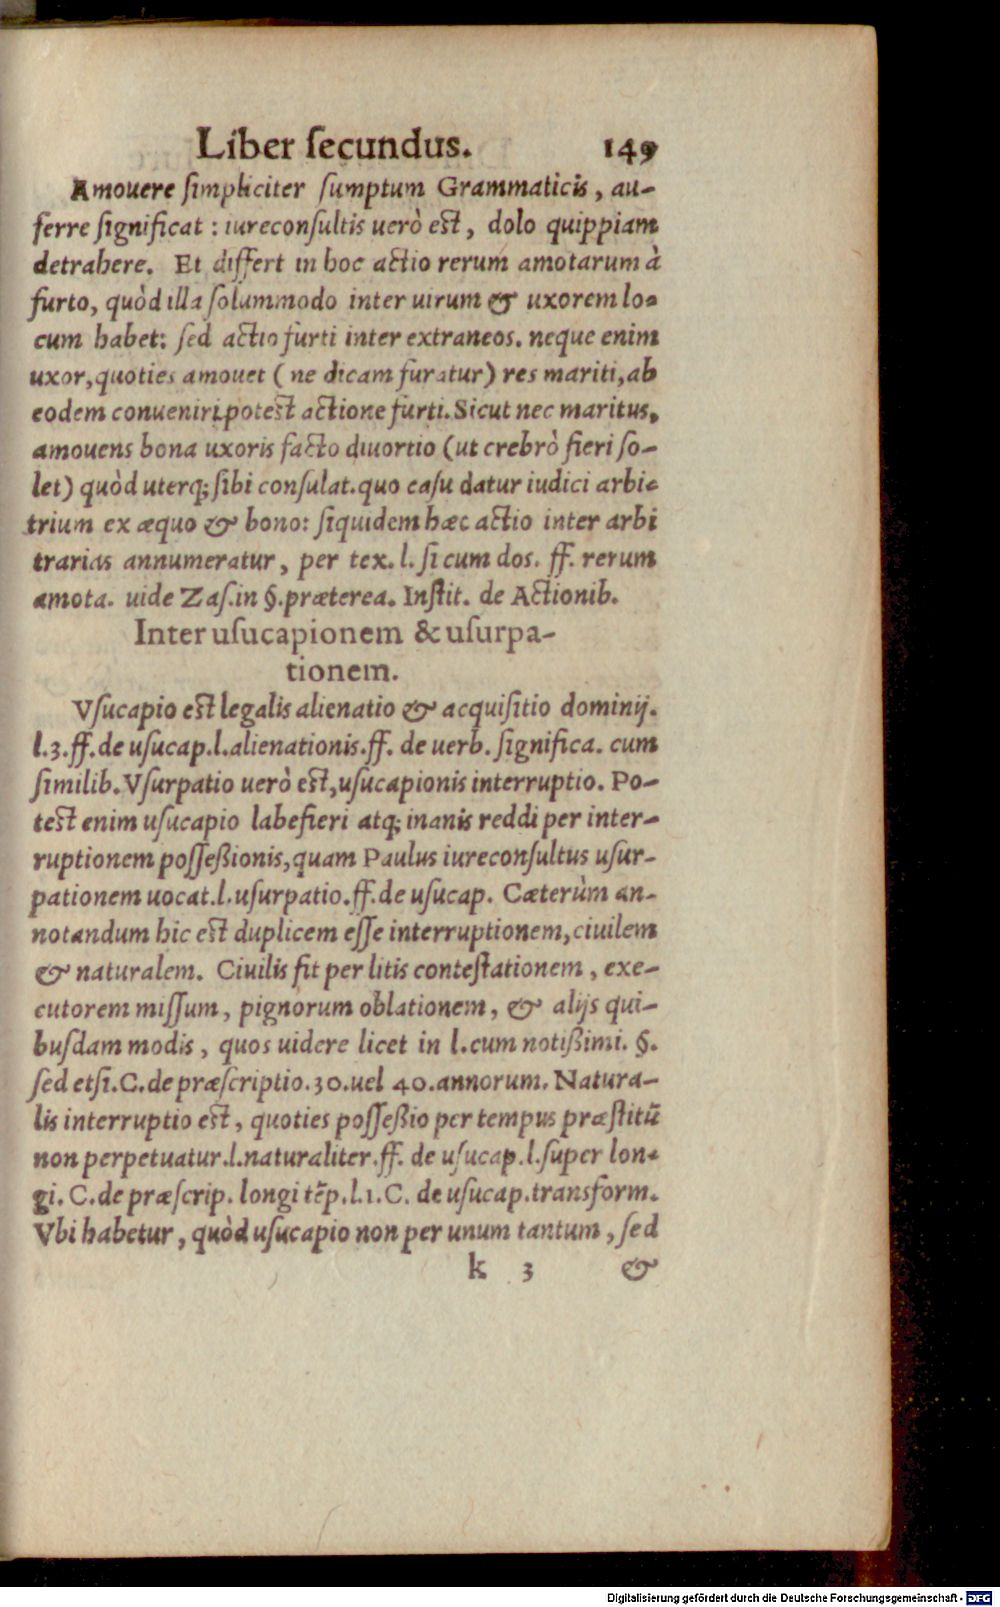 Liber ſecundus. 149
Amouere ſimpliciter ſumptum Grammaticis, au-
ferre ſignificat : iureconſultis uerò est, dolo quippiam
detrahere. Et differt in hoc actio rerum amotarum à
furto, quòd illa ſolummodo inter uirum & uxorem lo-
cum habet: ſed actio furti inter extraneos. neque enim
uxor, quoties amouet ( ne dicam furatur) res mariti, ab
eodem conueniri potest actione furti. Sicut nec maritus,
amouens bona uxoris facto diuortio (ut crebrò fieri ſo-
let) quòd uterq; ſibi conſulat. quo caſu datur iudici arbi-
trium ex æquo & bono: ſiquidem hæc actio inter arbi
trarias annumeratur, per tex. l. ſi cum dos. ff. rerum
amota. uide Zaſ. in §. præterea. Inſtit. de Actionib.
Inter uſucapionem & uſurpa-
tionem.
Vſucapio est legalis alienatio & acquiſitio dominij.
l. 3. ff. de uſucap. l. alienationis. ff. de uerb. ſignifica. cum
ſimilib. Vſurpatio uerò est, uſucapionis interruptio. Po-
test enim uſucapio labefieri atq; inanis reddi per inter-
ruptionem poſſeßionis, quam Paulus iureconſultus uſur-
pationem uocat. l. uſurpatio. ff. de uſucap. Cæterùm an-
notandum hic est duplicem eſſe interruptionem, ciuilem
& naturalem. Ciuilis fit per litis conteſtationem, exe-
cutorem miſſum, pignorum oblationem, & alijs qui-
buſdam modis, quos uidere licet in l. cum notißimi. §.
ſed etſi. C. de præſcriptio. 30. uel 40. annorum. Natura-
lis interruptio est, quoties poſſeßio per tempus præſtitū
non perpetuatur. l. naturaliter. ff. de uſucap. l. ſuper lon-
gi. C. de præſcrip. longi tēp. l. 1. C. de uſucap. transform.
Vbi habetur, quòd uſucapio non per unum tantum, ſed
k 3 &
Digitalisierung gefördert durch die Deutsche Forschungsgemeinschaft - DFG